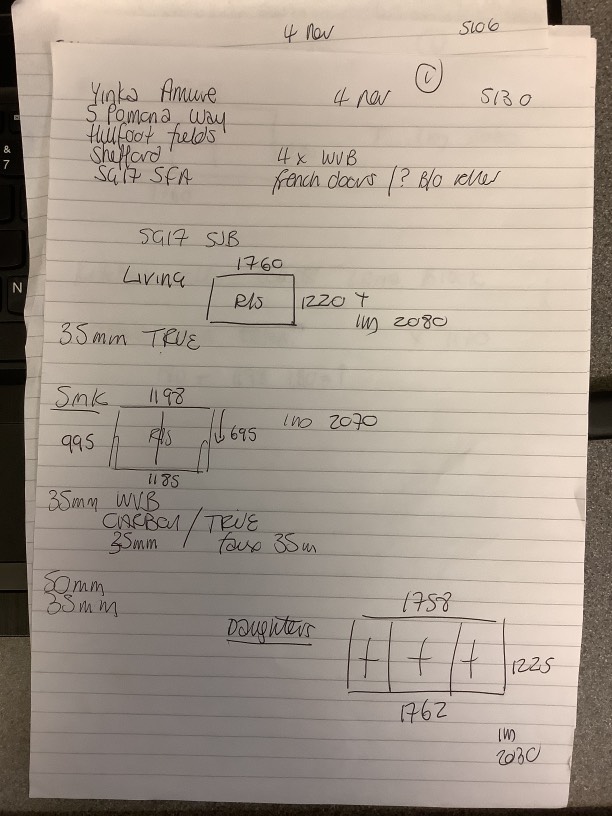 4 Nov 5106
4 Nov 5130
Yinka Amure
5 Pomona Way
Hullfoot fields
Shefford
SG17 5FA
4 x WVB
french doors / ? B/o roller
SG17 5JB
1760
Living
R/S
1220 T
IM 2080
35mm TRUE
SmK
1198
995
R/S
695
2070
1185
35mm WVB
CARBON / TRUE
35mm / faux 35m
50mm
35mm
1758
Daughters
1225
1762
IM
2030
&
7
N